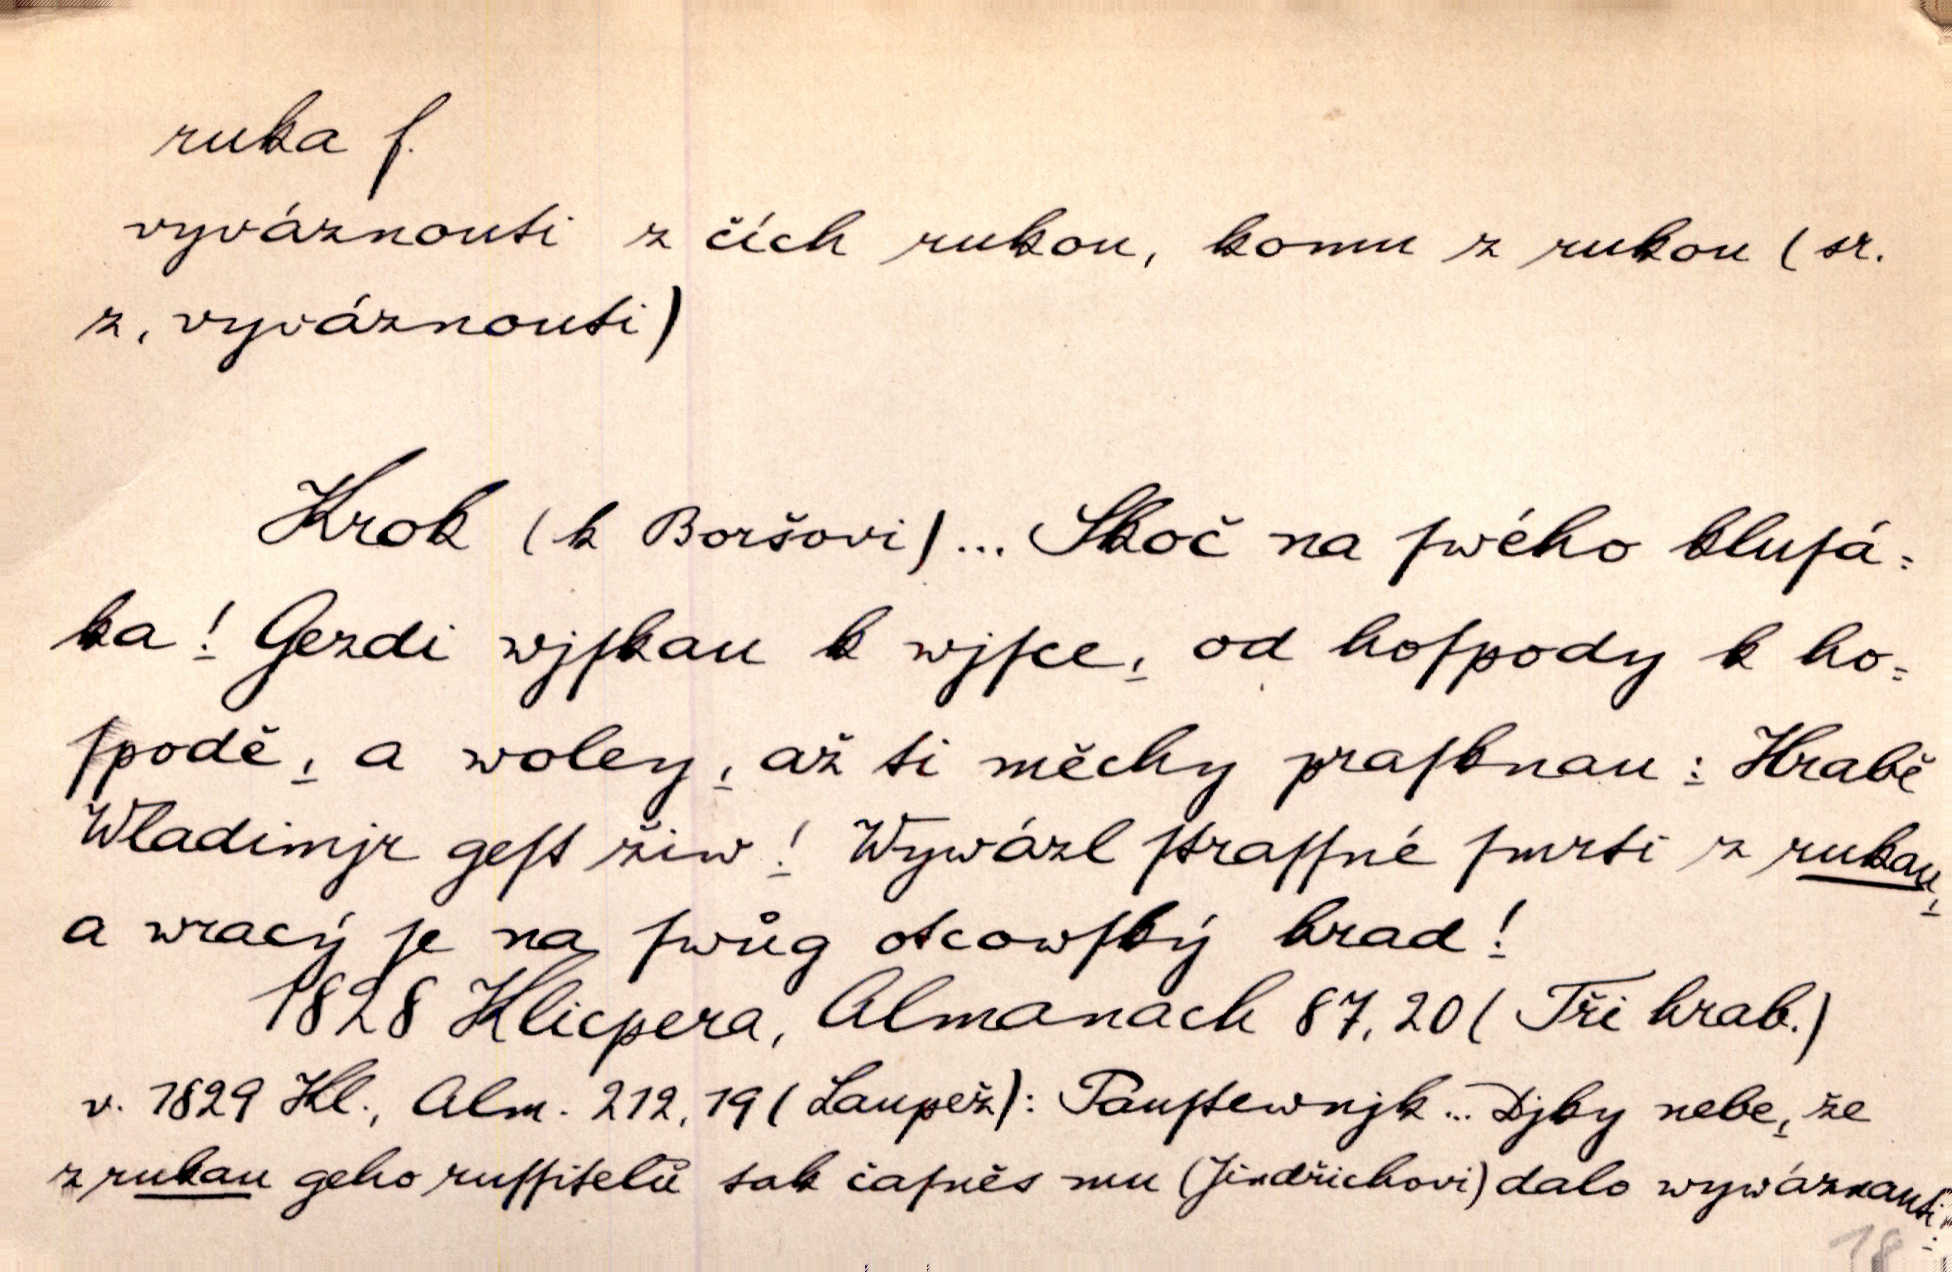 ruka f.
vyváznouti z čích rukou, komu z rukou (sr.
z, vyváznouti)
Krok (k Boršovi)... Skoč na ſwého kluſá=
ka! Gezdi wjſkau k wjſce, od hoſpody k ho=
ſpodě, a woley, až ti měchy praſknau: Hrabě
Wladimjr geſt žiw! Wywázl ſtraſſné ſmrti z rukau,
a wracý ſe na ſwůg otcowſký hrad!
1828 Klicpera, Almanach 87,20 (Tři hrab.)
v. 1829 Kl., Alm. 212,19 (Laupež): Pauſtewnjk... Djky nebe, že
z rukau geho ruſſitelů tak čaſněs mu (Jindřichovi) dalo wywáznauti.
18